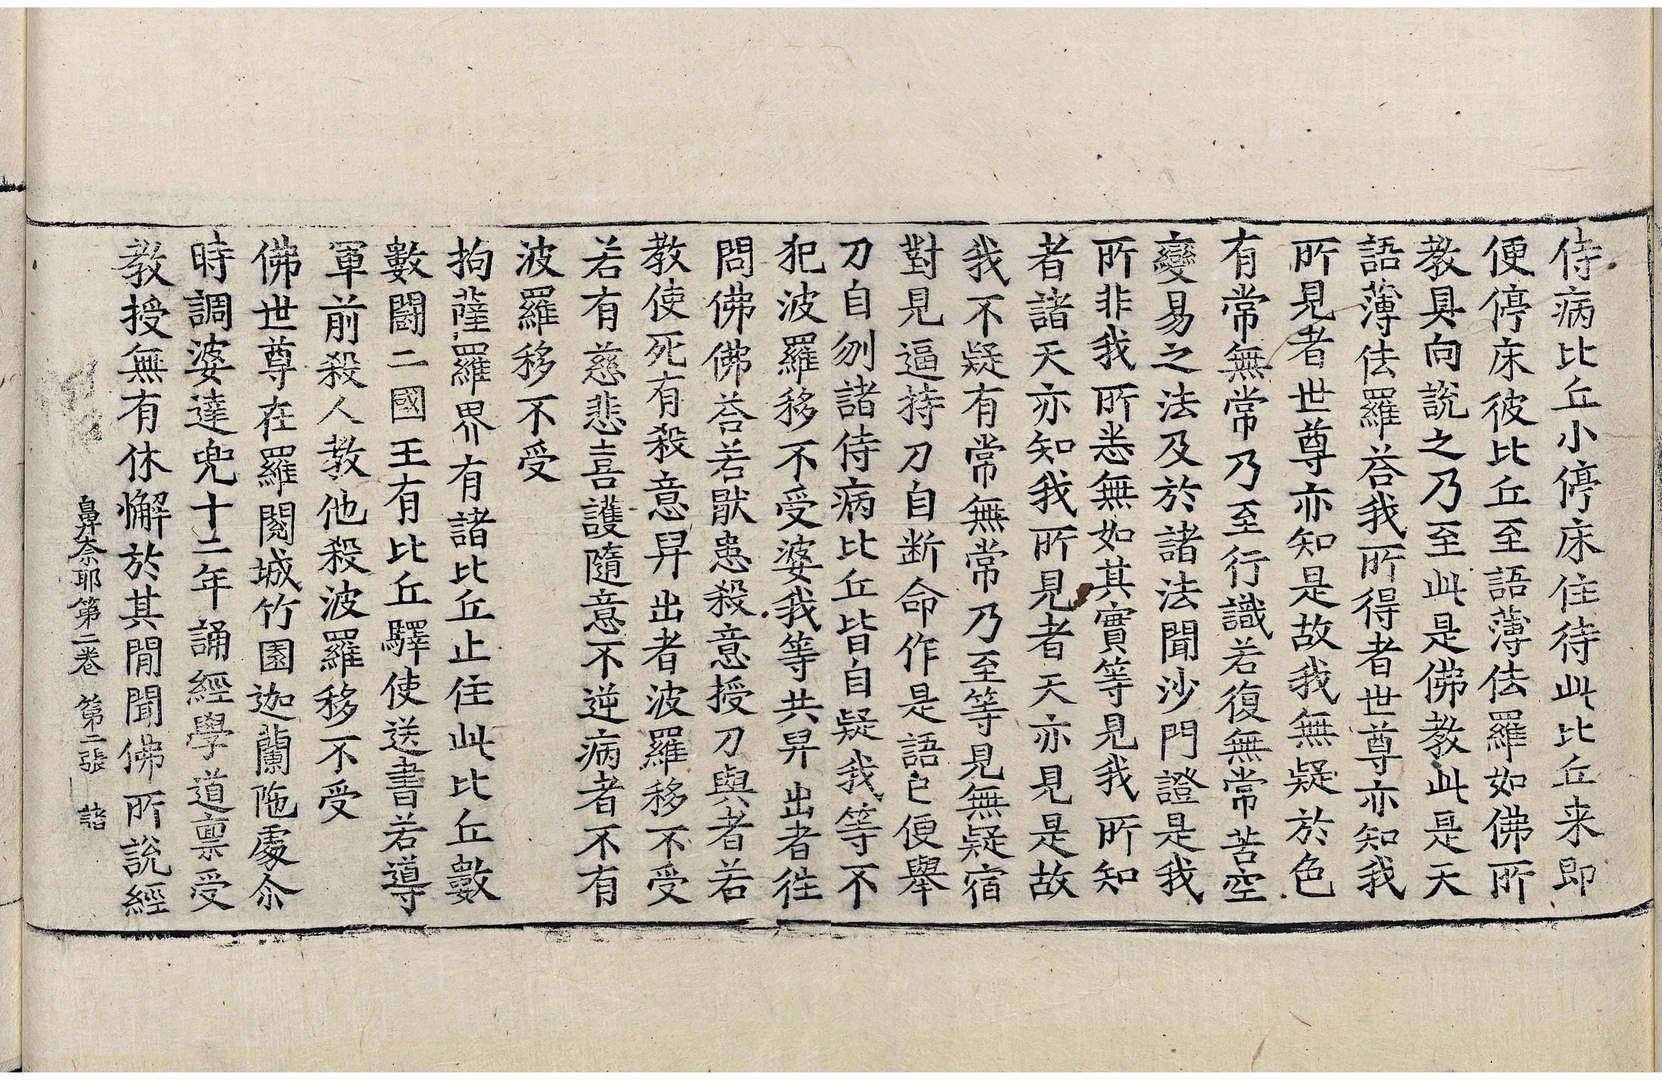 侍病比丘小停床住待此比丘来即
便停床彼比丘至語薄佉羅如佛所
教具向說之乃至此是佛教此是天
語薄佉羅荅我所得者世尊亦知我
所見者世尊亦知是故我無疑於色
有常無常乃至行識若復無常苦空
變易之法及於諸法聞沙門證是我
所非我所悉無如其實等見我所知
者諸天亦知我所見者天亦見是故
我不疑有常無常乃至等見無疑宿
對見逼持刀自断命作是語已便舉
刀自刎諸侍病比丘皆自疑我等不
犯波羅移不受婆我等共舁出者徃
問佛佛荅若猒患殺意授刀與者若
教使死有殺意舁出者波羅移不受
若有慈悲喜護隨意不逆病者不有
波羅移不受
拘薩羅界有諸比丘止住此比丘數
數闘二國王有比丘驛使送書若導
軍前殺人教他殺波羅移不受
佛世尊在羅閱城竹園迦蘭陁處尒
時調婆達兜十二年誦經學道禀受
教授無有休懈於其閒聞佛所說經
鼻奈耶第二卷 第二張